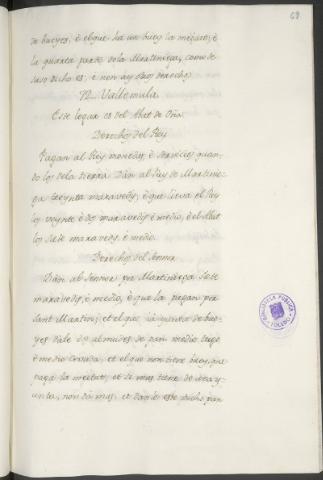 68
de bueyes, è el que ha un buey la meitat, è
la quarta parte de la Martiniega, como de
suso dicho es, è non ay otros derechos.
Vallemula
Este logar es del Abat de Oña.
Derechos del Rey
Pagan al Rey monedas, è servicios quan-
do los de la tierra. Dan al Rey de Martinie-
ga treynta maravedis, è que lieva el Rey
los veynte è dos maravedis è medio, è el Abat
los siete maravedis, è medio.
Derechos del Sennor
Dàn al Sennor por Martiniega siete
maravedis, è medio, è que la pagan por
Sant Martin; et el que à yunta de bue-
yes dale dos almudes de pan medio trigo
è medio cevada, et el que non tiene buey,
paga la meitat, et si mas tiene de una y-
unta, non dà mas, et dan le este dicho pan
BIBLIOTECA PÚBLICA
TOLEDO